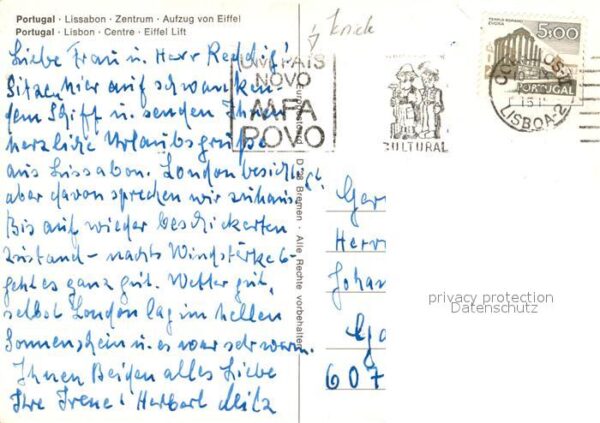 Portugal · Lissabon · Zentrum · Aufzug von Eiffel
Portugal · Lisbon · Centre · Eiffel Lift
Liebe Frau u. Herr Reddig!
Sitzen hier auf schwanken-
dem Schiff u. senden Ihnen
herzliche Urlaubsgrüße
aus Lissabon. London besichtigt
aber davon sprechen wir zuhause
Bis auf wieder
Zustand – nachts Windstärke 6 –
geht es ganz gut. Wetter gut,
selbst London lag im hellen
Sonnenschein u. es war sehr warm.
Ihnen Beiden alles Liebe
Ihre Irene + Herbert Milz
Knick
UM PAIS
NOVO
MFA
POVO
CULTURAL
5$00
PORTUGAL
LISBOA-2
D 28 Bremen · Alle Rechte vorbehalten
Herr
Johan
607
privacy protection
Datenschutz